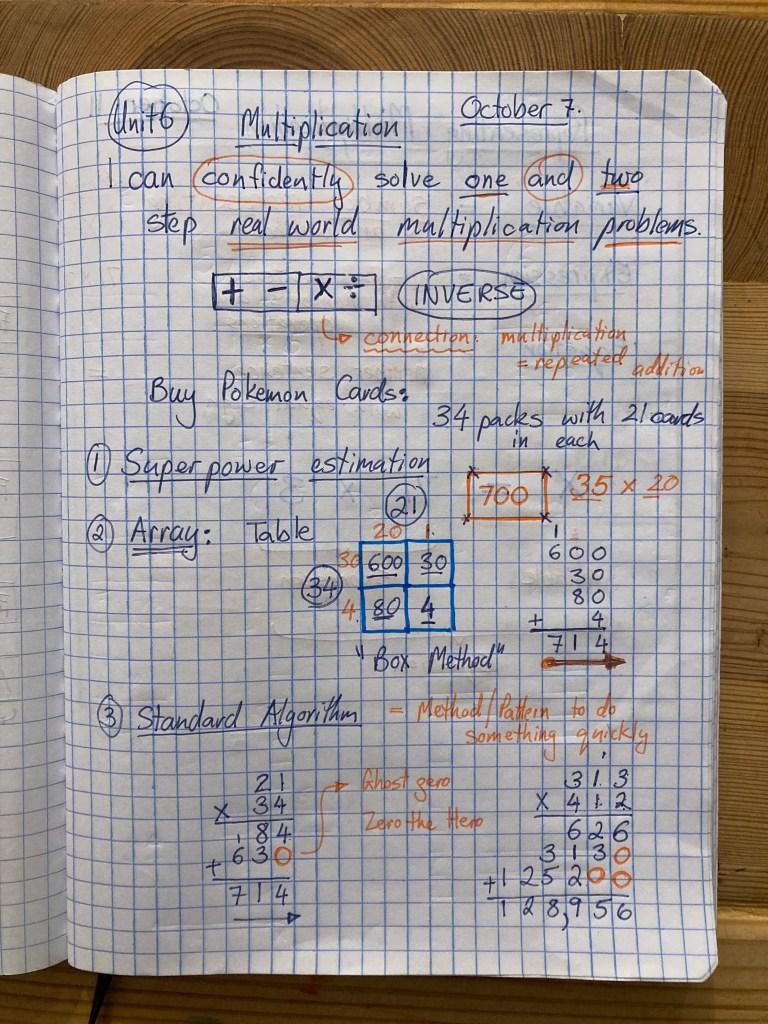 Unit 6 Multiplication October 7.
I can confidently solve one and two
step real world multiplication problems.
+ - × ÷ INVERSE
connection. multiplication
= repeated addition
Buy Pokemon Cards:
34 packs with 21 cards
in each
① Super power estimation
700 35 × 20
② Array: Table
21
20 1.
30 600 30
34
4. 80 4
"Box Method"
1
600
30
80
+ 4
714
③ Standard Algorithm = Method/Pattern to do
something quickly
21
× 34
1
84
+ 630
714
Ghost zero
Zero the Hero
1
313
× 412
626
3130
+125200
128,956